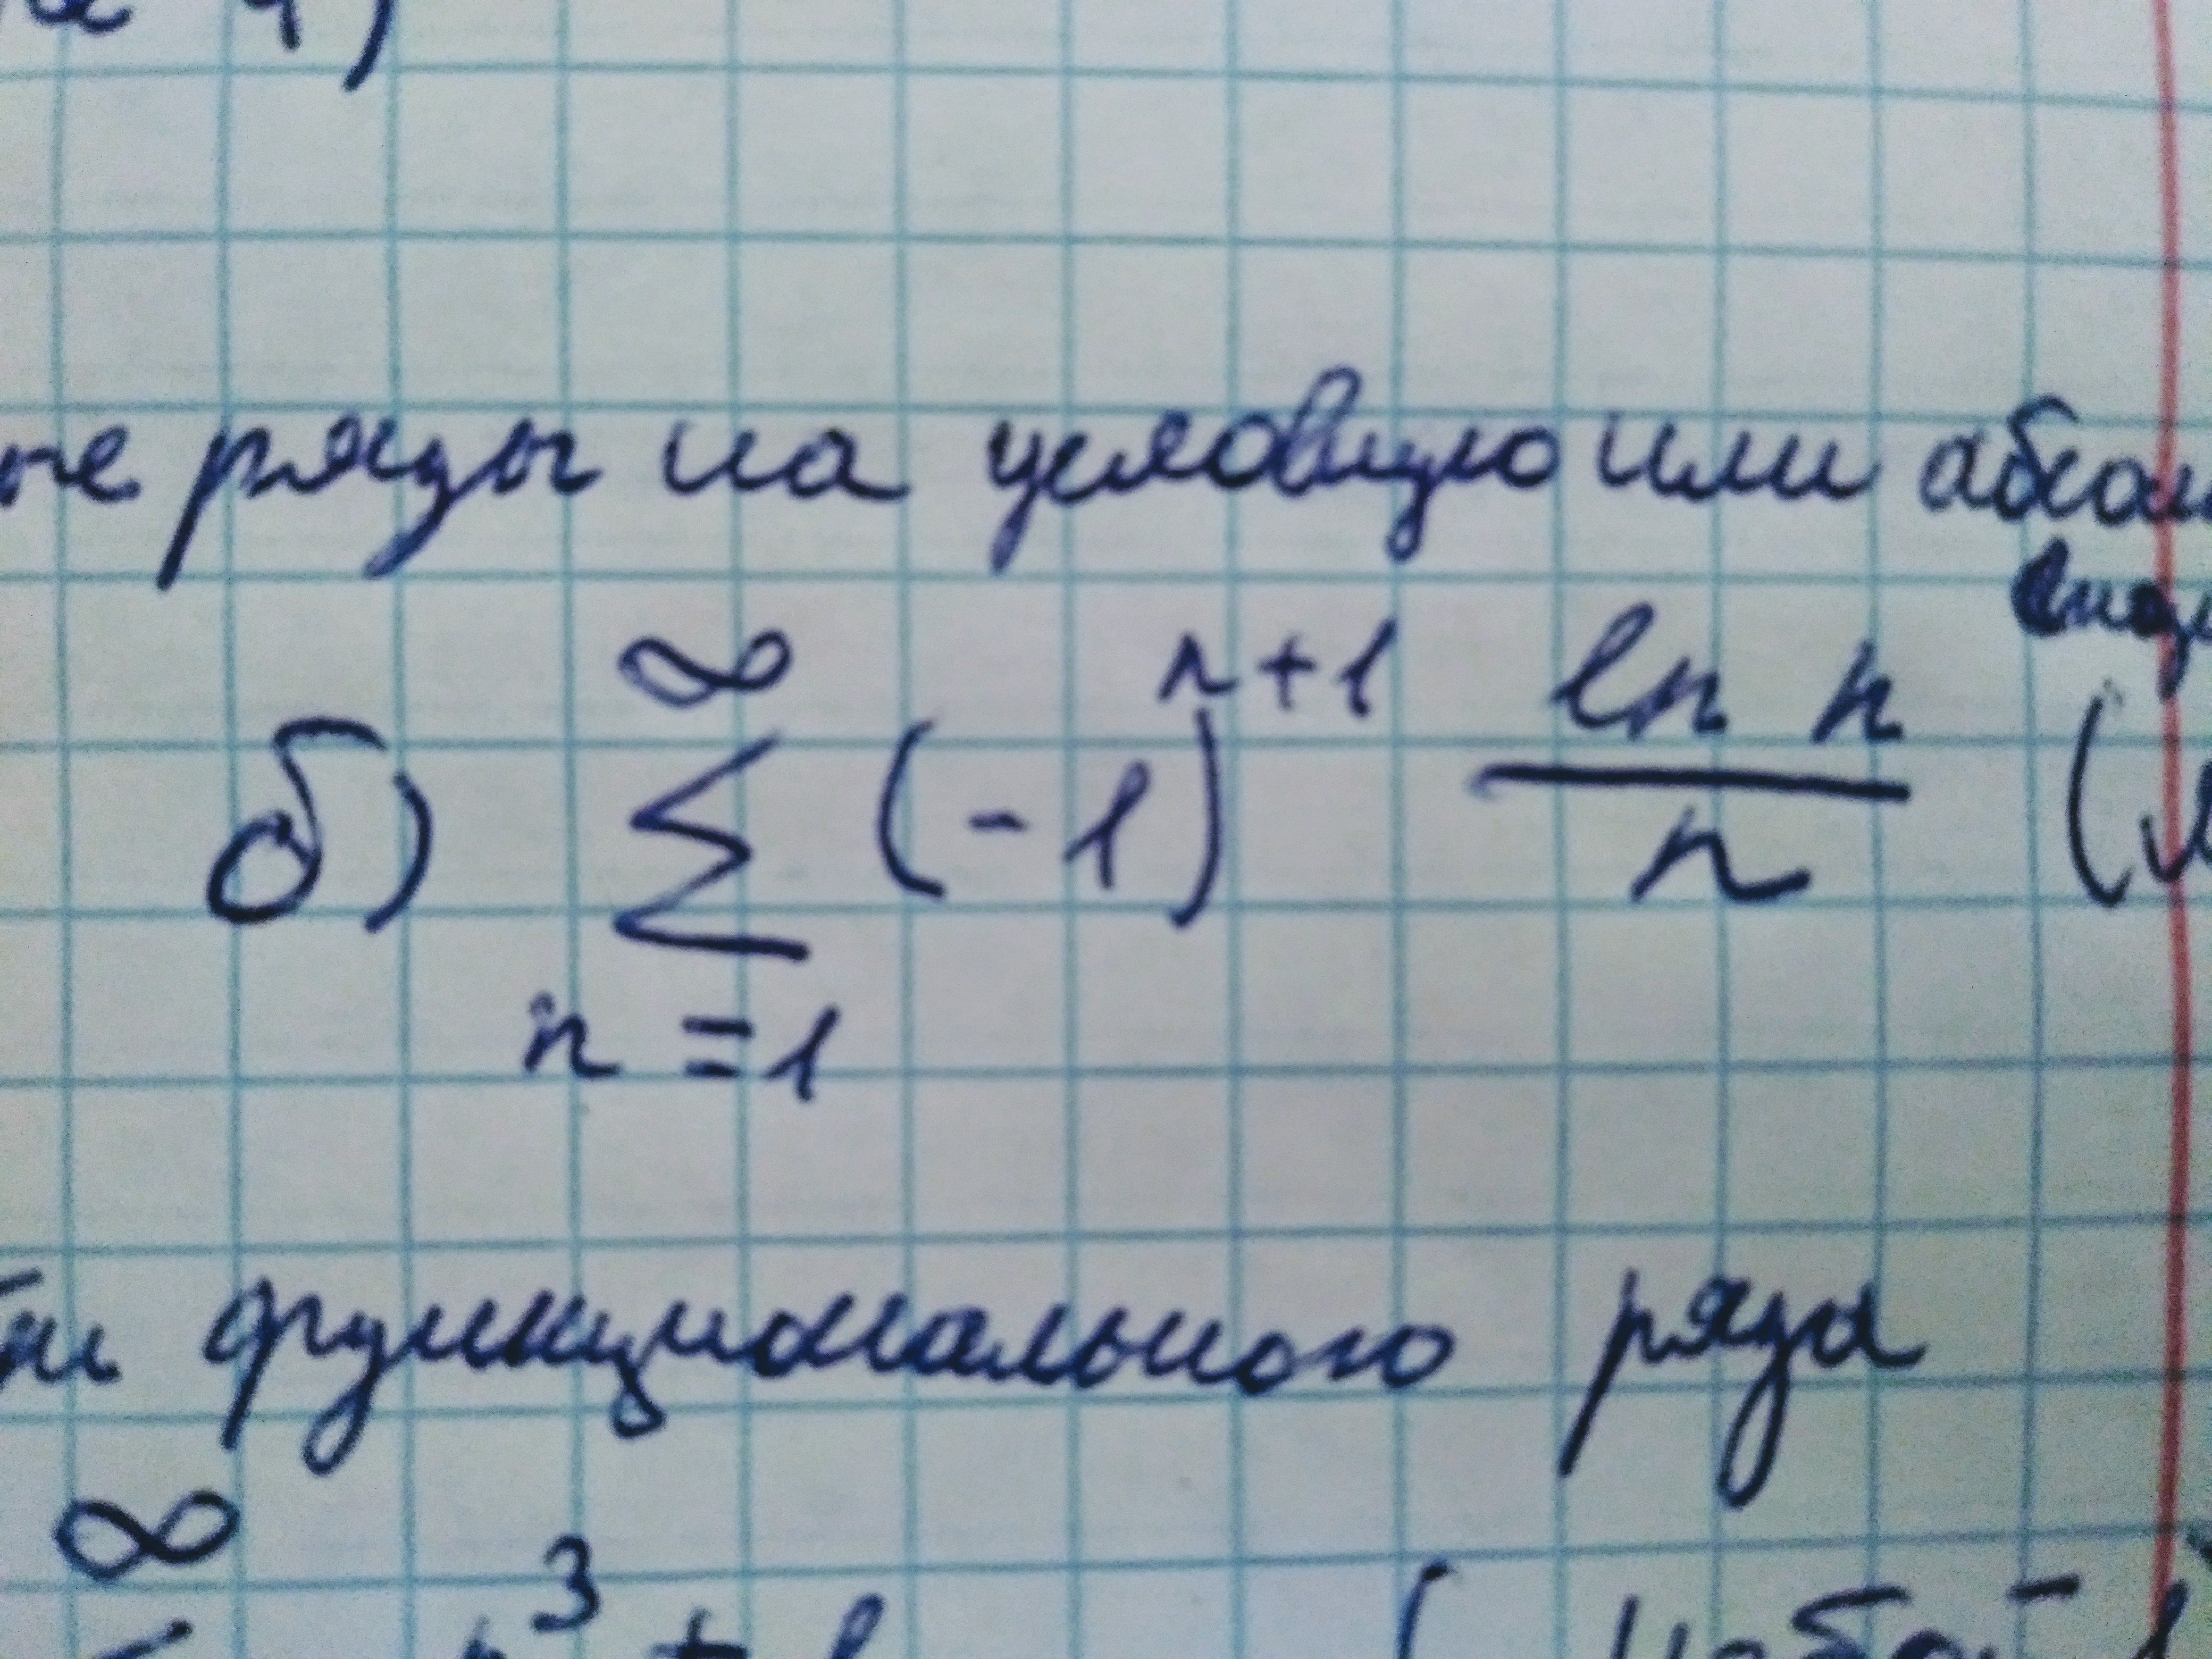 4)
ые ряды на условную или абсол
б) ∞ ∑ n=1 (-1)^{n+1} \frac{ln n}{n} (
функционального ряда
∞
n³ + 1